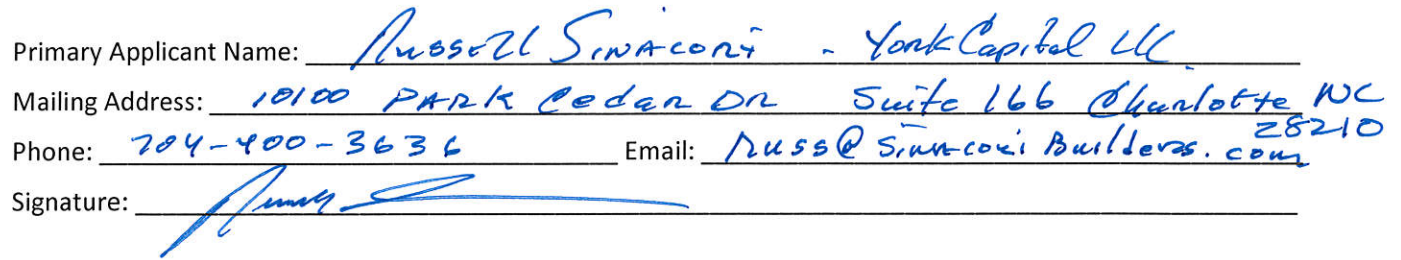 Primary Applicant Name: Russell Sinacori - York Capital LLC
Mailing Address: 10100 Park Cedar Dr Suite 166 Charlotte NC
28210
Phone: 704-400-3636 Email: Russ@SinacoriBuilders.com
Signature: